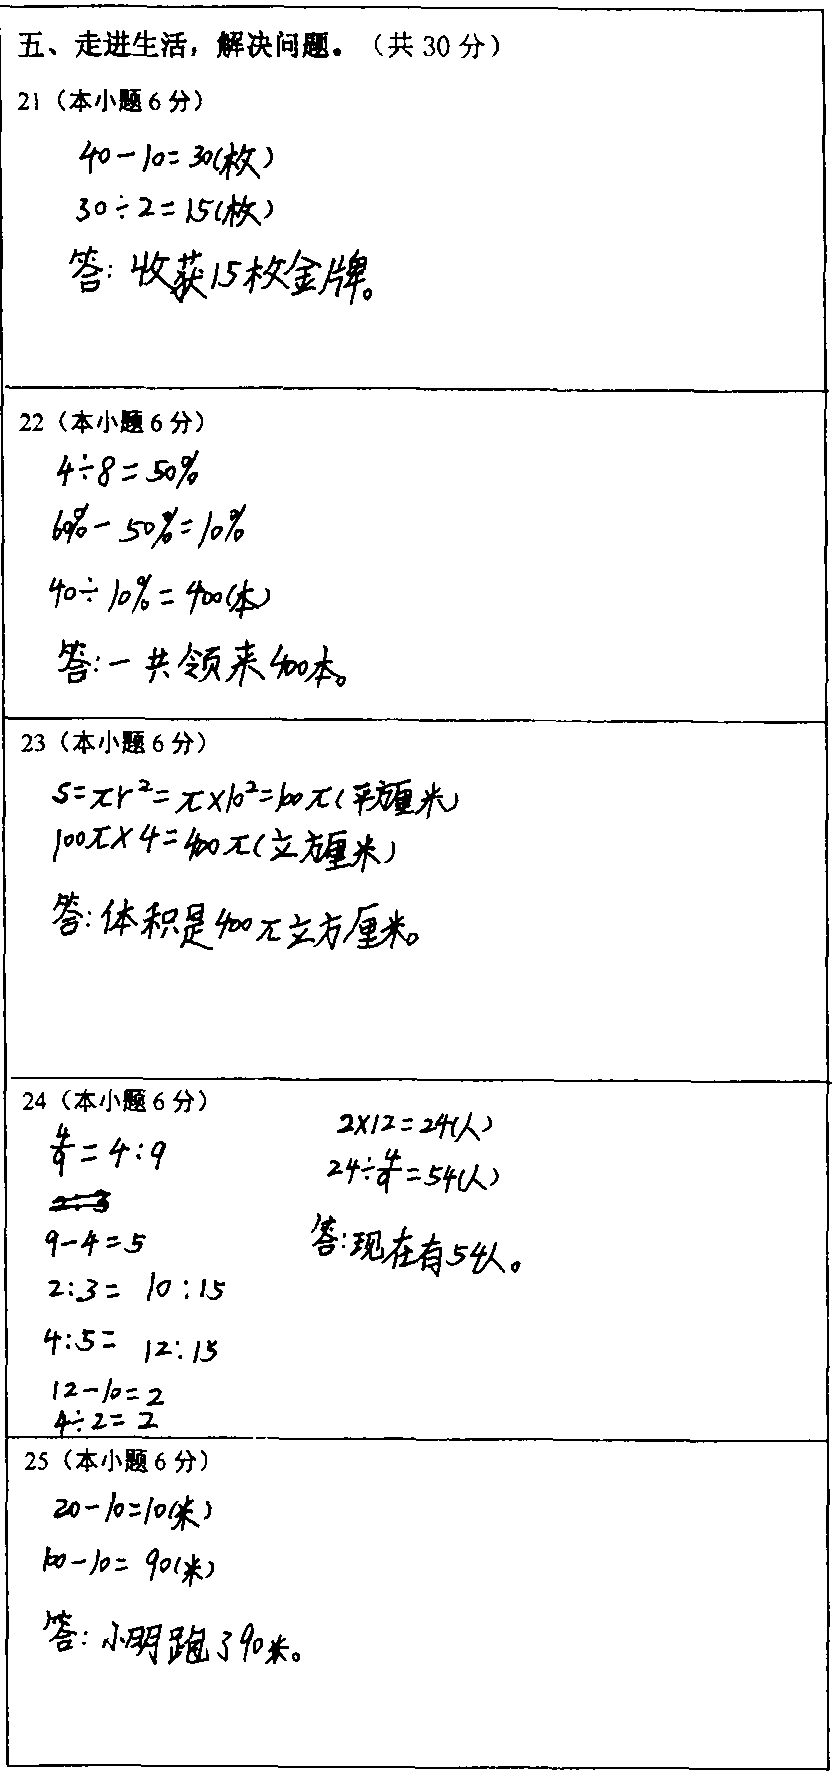 五、走进生活，解决问题。（共 30 分）
21（本小题 6 分）
40-10=30(枚)
30÷2=15(枚)
答: 收获15枚金牌。
22（本小题 6 分）
4÷8=50%
60%-50%=10%
40÷10%=400(本)
答:一共领来400本。
23（本小题 6 分）
S=πr²=π×10²=100π(平方厘米)
100π×4=400π(立方厘米)
答:体积是400π立方厘米。
24（本小题 6 分）
4/9=4:9
9-4=5
2:3= 10:15
4:5= 12:15
12-10=2
4÷2=2
2×12=24(人)
24÷4/9=54(人)
答:现在有54人。
25（本小题 6 分）
20-10=10(米)
100-10= 90(米)
答: 小明跑了90米。